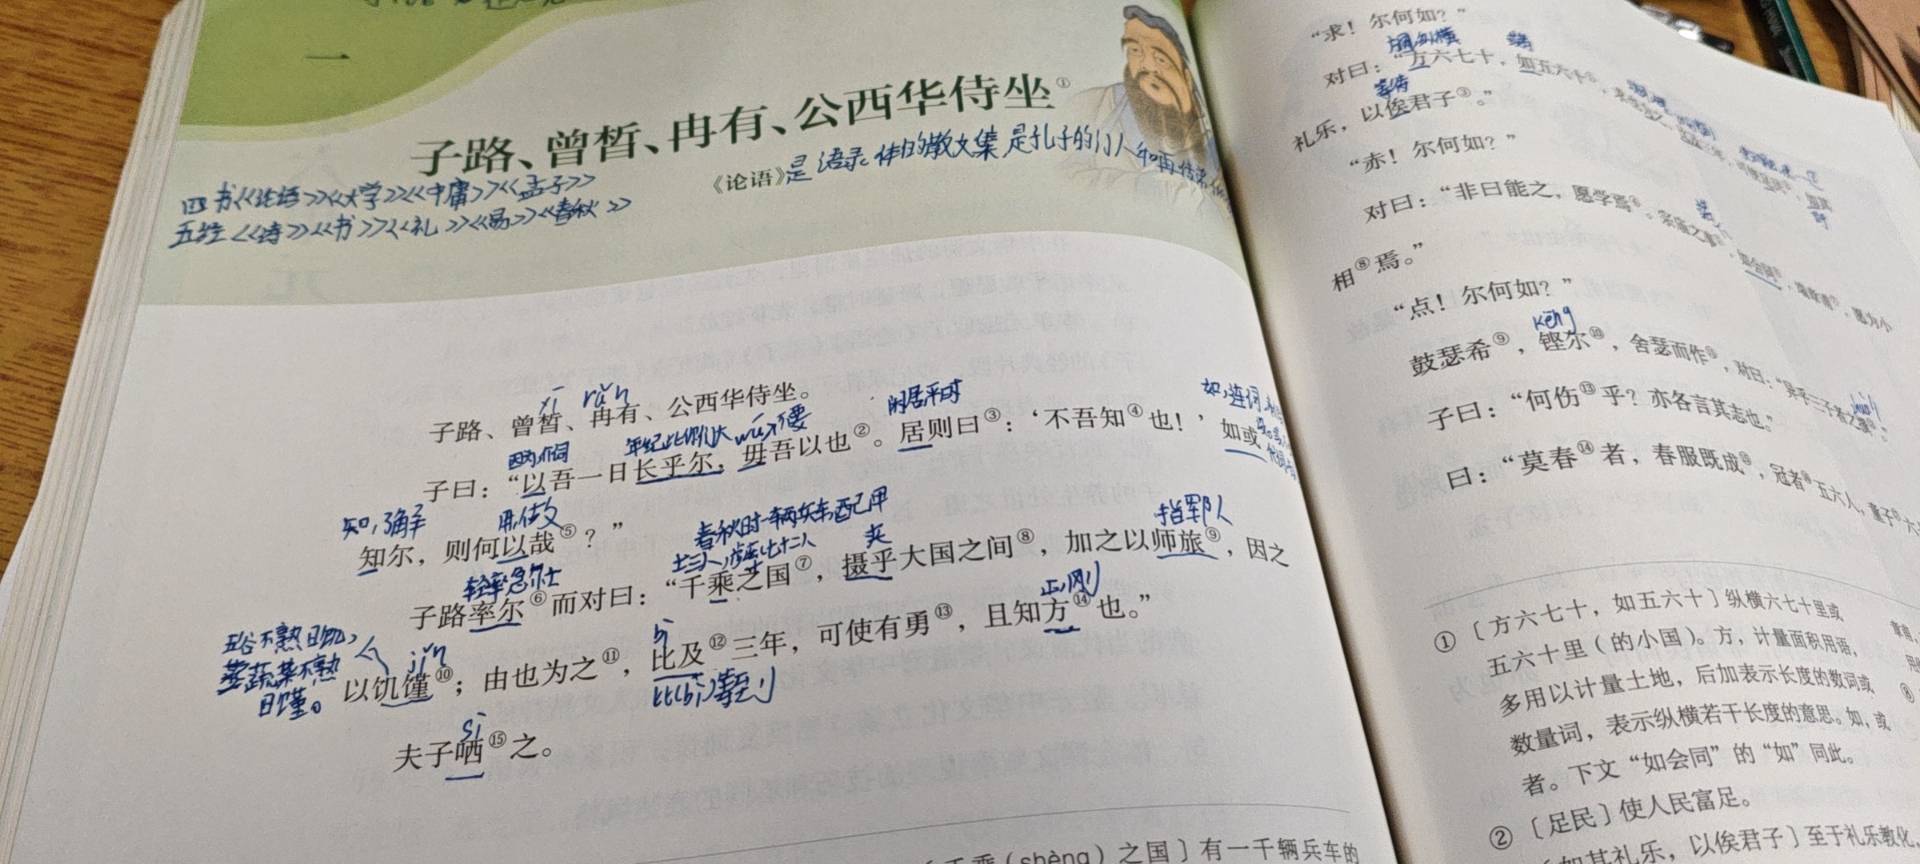 一
子路、曾皙、冉有、公西华侍坐①
《论语》是语录体的散文集 是孔子的门人和再传
四书《论语》《大学》《中庸》《孟子》
五经《诗》《书》《礼》《易》《春秋》
xī rǎn
子路、曾皙、冉有、公西华侍坐。
因为 介词 年纪比你们大 wú 不要 闲居平时
子曰：“以吾一日长乎尔，毋吾以也②。居则曰③：‘不吾知④也！’如或
如，连词
知，了解 用，做
知尔，则何以哉⑤？”
春秋时一辆兵车配甲
士三人，步卒七十二人 夹 指军队
轻率急忙
子路率尔⑥而对曰：“千乘之国⑦，摄乎大国之间⑧，加之以师旅⑨，因之
五谷不熟曰饥，
蔬菜不熟
曰馑。
jǐn bì
以饥馑⑩；由也为之⑪，比及⑫三年，可使有勇⑬，且知方⑭也。”
比(bì)等到
sì
夫子哂⑮之。
千乘（shèng）之国〕有一千辆兵车的
“求！尔何如？”
对曰：“方六七十，如五六十
等待
礼乐，以俟君子③。”
“赤！尔何如？”
对曰：“非曰能之，愿学焉
愿为小
相⑧焉。”
“点！尔何如？”
kēng
鼓瑟希⑨，铿尔⑩，舍瑟而作⑪，对曰：“异乎三子者之撰
子曰：“何伤⑬乎？亦各言其志也。”
曰：“莫春⑭者，春服既成⑮，冠者⑯五六人，童子
①〔方六七十，如五六十〕纵横六七十里或
五六十里（的小国）。方，计量面积用语，
多用以计量土地，后加表示长度的数词或
数量词，表示纵横若干长度的意思。如，或
者。下文“如会同”的“如”同此。
②〔足民〕使人民富足。
如其礼乐，以俟君子〕至于礼乐教化，